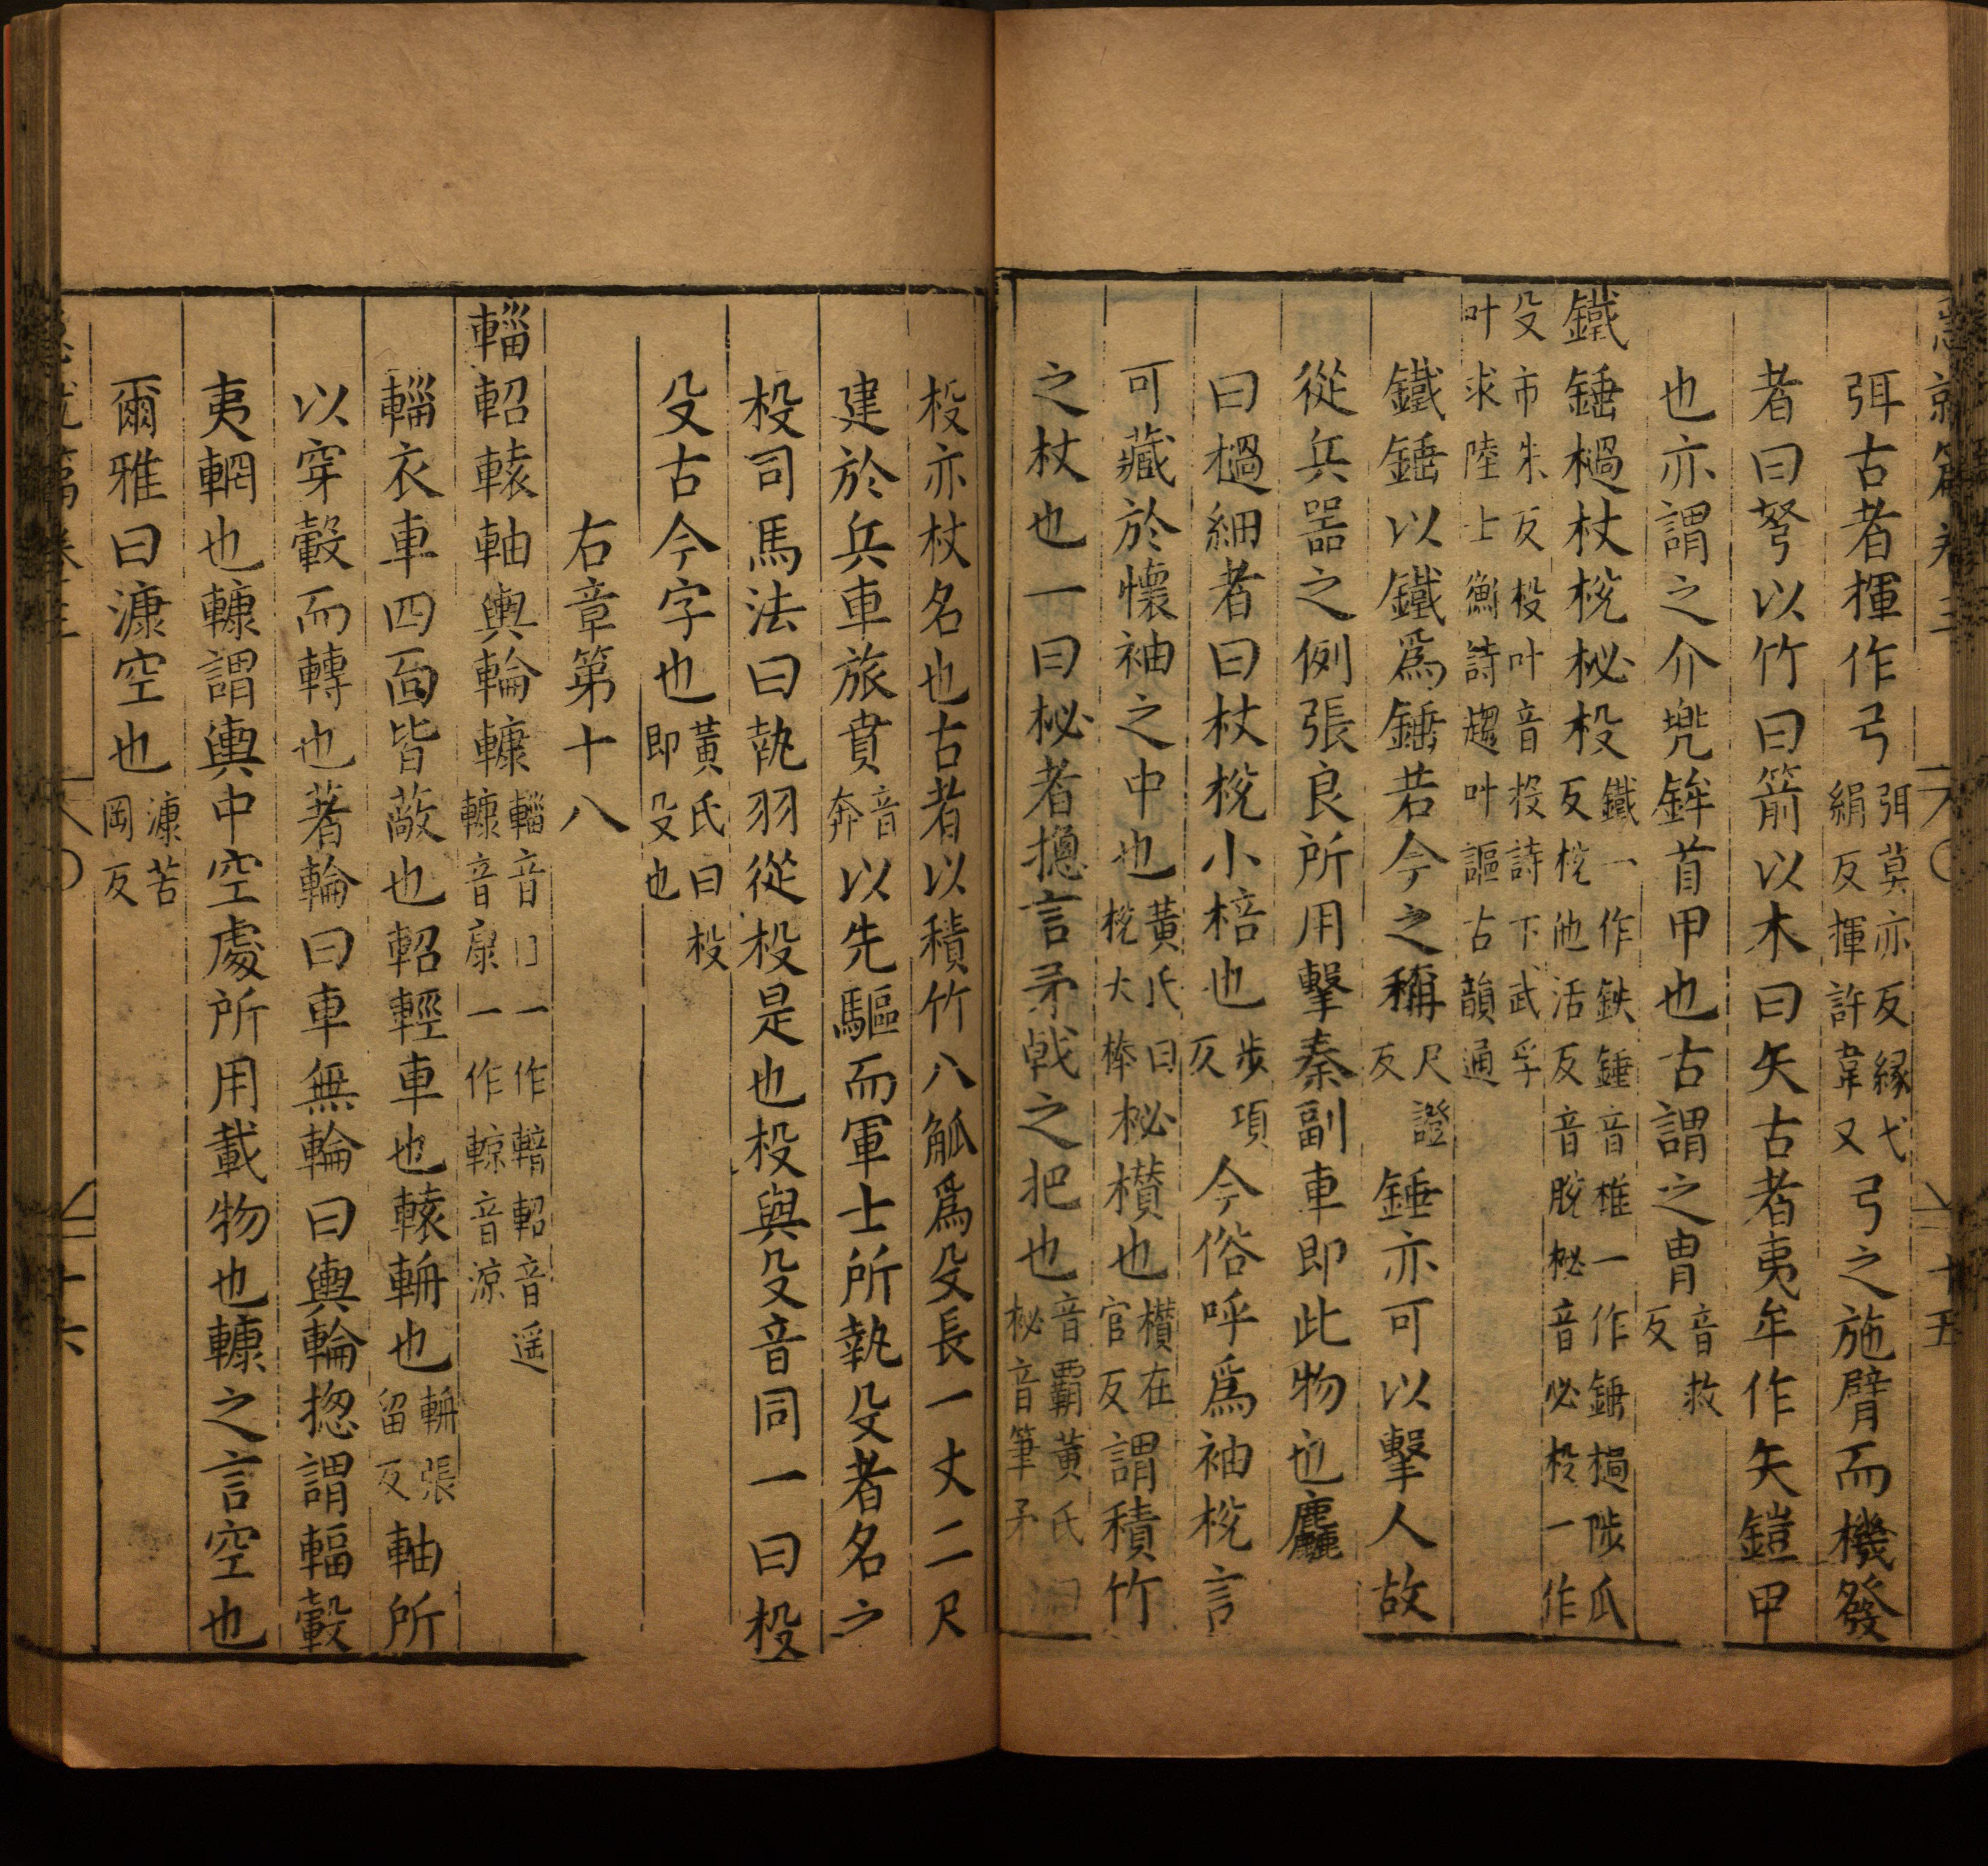 急就篇卷三 十五
弭古者揮作弓弭莫亦反緣弋絹反揮許韋又弓之施臂而機發
者曰弩以竹曰箭以木曰矢古者夷牟作矢鎧甲
也亦謂之介兠鉾首甲也古謂之胄音救反
鐵錘檛杖梲柲杸鐵一作鉄錘音椎一作錘檛陟瓜反梲他活反音脫柲音必杸一作
殳市朱反杸叶音投詩下武孚叶求陸士衡詩趨叶謳古韻通
鐵錘以鐵爲錘若今之稱尺證反錘亦可以擊人故
從兵噐之例張良所用擊秦副車即此物也麤
曰檛細者曰杖梲小棓也步項反今俗呼爲袖梲言
可藏於懷袖之中也黃氏曰梲大棒柲欑也欑在官反謂積竹
之杖也一曰柲者揔言矛戟之把也音霸黃氏曰柲音筆矛
杸亦杖名也古者以積竹八觚爲殳長一丈二尺
建於兵車旅賁音奔以先驅而軍士所執殳者名之
杸司馬法曰執羽從杸是也杸與殳音同一曰杸
殳古今字也黃氏曰杸即殳也
右章第十八
輜軺轅軸輿輪轅輜音一作輺軺音遥轅音康一作輬音涼
輜衣車四面皆蔽也軺輕車也轅輈也輈張留反軸所
以穿轂而轉也著輪曰車無輪曰輿輪揔謂輻轂
夷輞也轅謂輿中空處所用載物也轅之言空也
爾雅曰漮空也漮苦岡反
十六